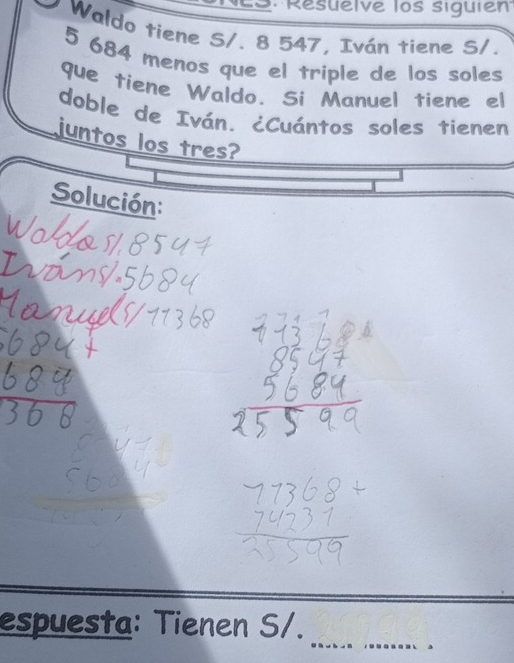 Resuelve los siguien
Waldo tiene S/. 8 547, Iván tiene S/.
5 684 menos que el triple de los soles
que tiene Waldo. Si Manuel tiene el
doble de Iván. ¿Cuántos soles tienen
juntos los tres?
Solución:
Waldo s/. 8547
Iván s/. 5684
Manuel s/ 11368
5684 +
684
368
11368
8547
5684
25599
8547
5684
11368 +
14231
25599
espuesta: Tienen S/.